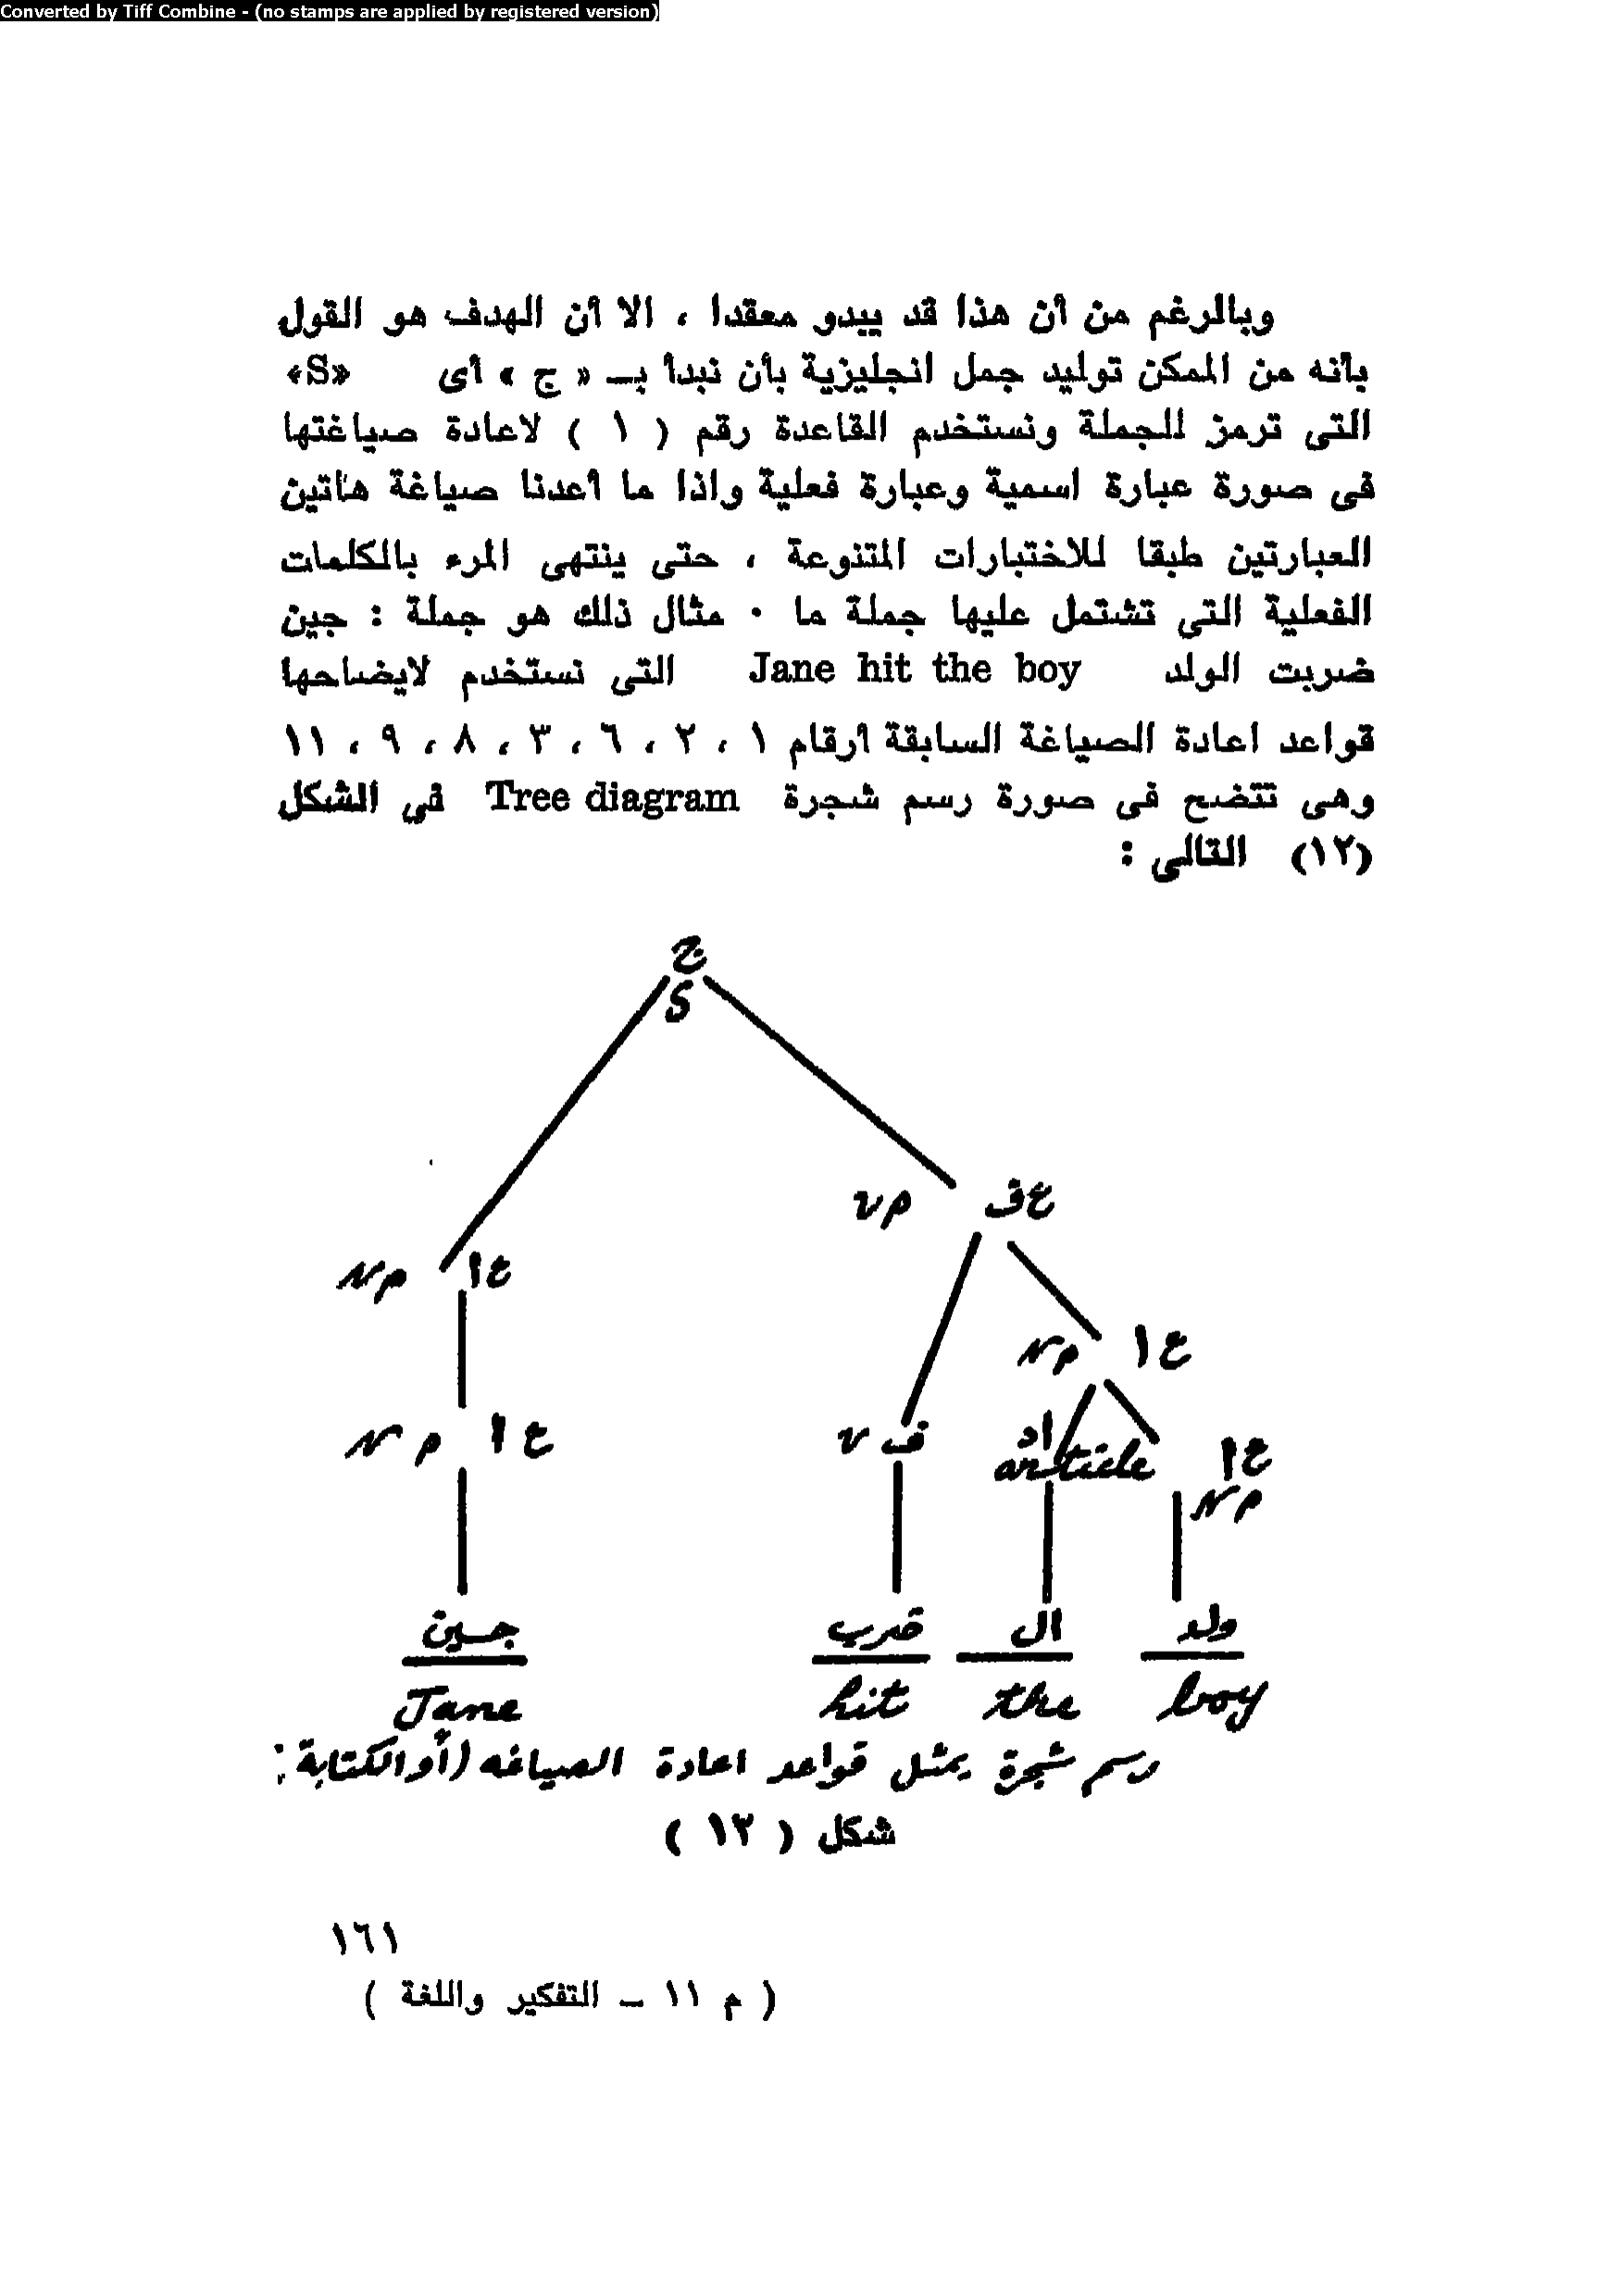 Converted by Tiff Combine - (no stamps are applied by registered version)
وبالرغم من أن هذا قد يبدو معقدا ، الا أن الهدف هو القول
بأنه من الممكن توليد جمل انجليزية بأن نبدأ بـ « ج » أى «S»
التى ترمز للجملة ونستخدم القاعدة رقم ( ١ ) لاعادة صياغتها
فى صورة عبارة اسمية وعبارة فعلية واذا ما أعدنا صياغة هاتين
العبارتين طبقا للاختبارات المتنوعة ، حتى ينتهى المرء بالكلمات
الفعلية التى تشتمل عليها جملة ما ٠ مثال ذلك هو جملة : جين
ضربت الولد Jane hit the boy التى نستخدم لايضاحها
قواعد اعادة الصياغة السابقة أرقام ١ ، ٢ ، ٦ ، ٣ ، ٨ ، ٩ ، ١١
وهى تتضح فى صورة رسم شجرة Tree diagram فى الشكل
(١٢) التالى :
ج
S
vp ع ف
Np ع ا
Np ع ا
N p ع ا
v ف
اد
article
ع ا
Np
جين ضرب ال ولد
Jane hit the boy
رسم شجرة يمثل قواعد اعادة الصياغه (أو الكتابة :
شكل ( ١٢ )
١٦١
( م ١١ – التفكير واللغة )